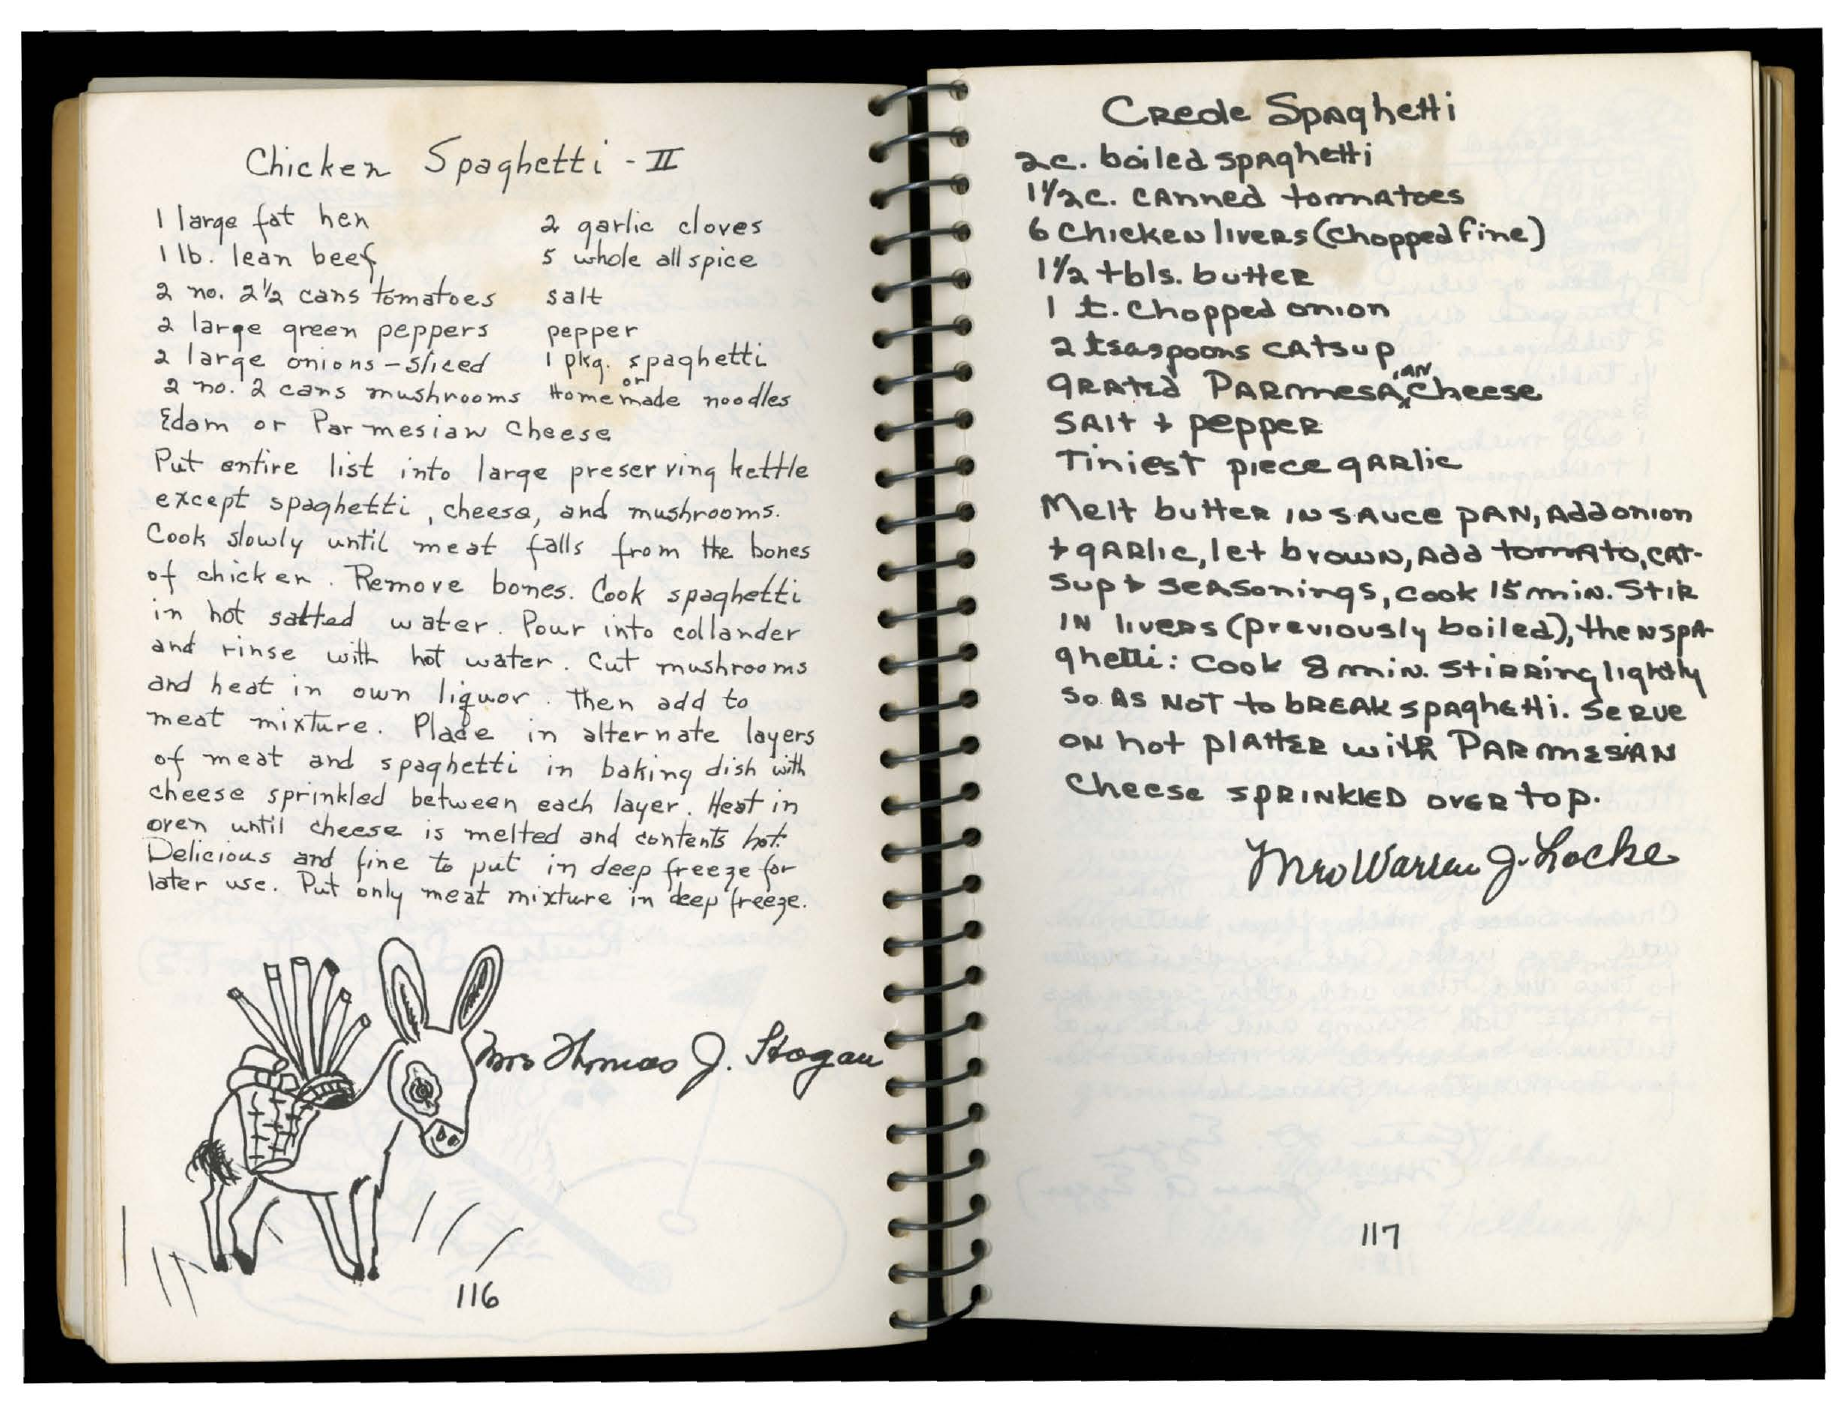 Chicken Spaghetti - II
1 large fat hen
1 lb. lean beef
2 no. 2½ cans tomatoes
2 large green peppers
2 large onions - sliced
2 no. 2 cans mushrooms
Edam or Parmesian Cheese
2 garlic cloves
5 whole all spice
salt
pepper
1 pkg. spaghetti
or
Homemade noodles
Put entire list into large preserving kettle
except spaghetti, cheese, and mushrooms.
Cook slowly until meat falls from the bones
of chicken. Remove bones. Cook spaghetti
in hot salted water. Pour into collander
and rinse with hot water. Cut mushrooms
and heat in own liquor. Then add to
meat mixture. Place in alternate layers
of meat and spaghetti in baking dish with
cheese sprinkled between each layer. Heat in
oven until cheese is melted and contents hot.
Delicious and fine to put in deep freeze for
later use. Put only meat mixture in deep freeze.
Mrs Thomas J. Hogan
116
Crede Spaghetti
2c. boiled spaghetti
1½c. canned tomatoes
6 Chicken livers (Chopped fine)
1½ tbls. butter
1 t. Chopped onion
2 tsaspoons catsup
grated Parmesian Cheese
Salt + pepper
Tiniest piece garlic
Melt butter in sauce pan, add onion
+ garlic, let brown, add tomato, cat-
sup + seasonings, cook 15 min. Stir
in livers (previously boiled), then spa-
ghetti: Cook 8 min. stirring lightly
so as not to break spaghetti. Serve
on hot platter with Parmesian
Cheese sprinkled over top.
Mrs Warren J. Locke
117